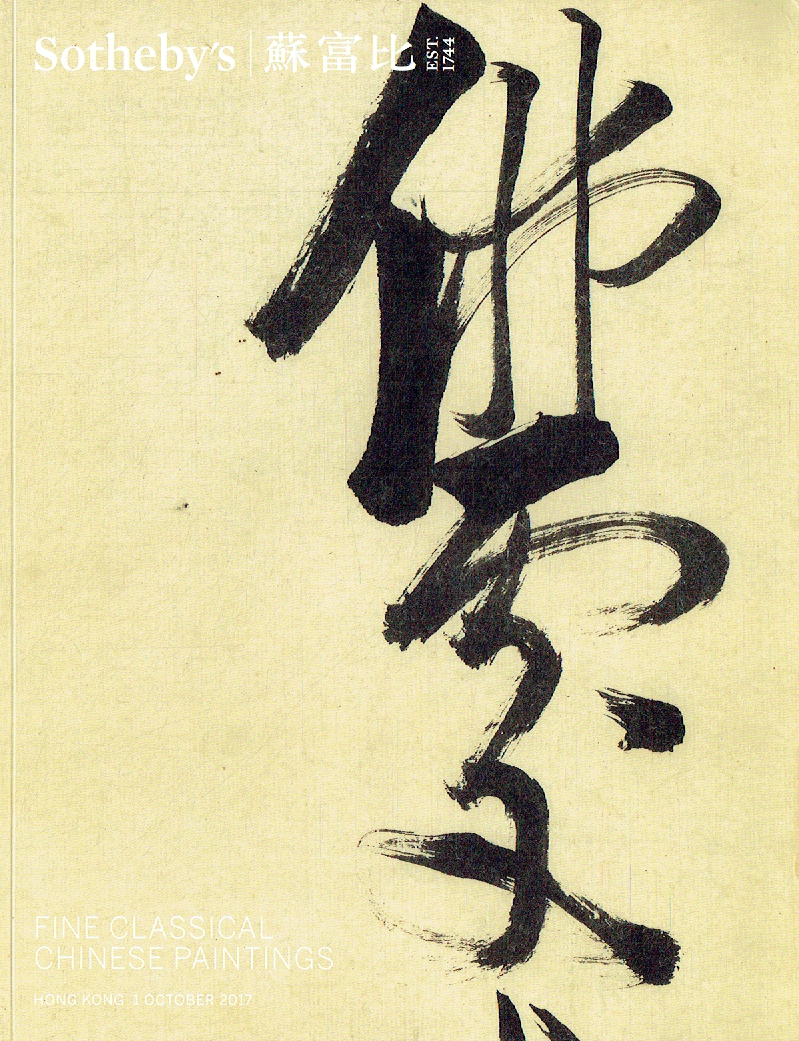 Sotheby's | 蘇富比 EST. 1744
佛
FINE CLASSICAL
CHINESE PAINTINGS
HONG KONG 1 OCTOBER 2017